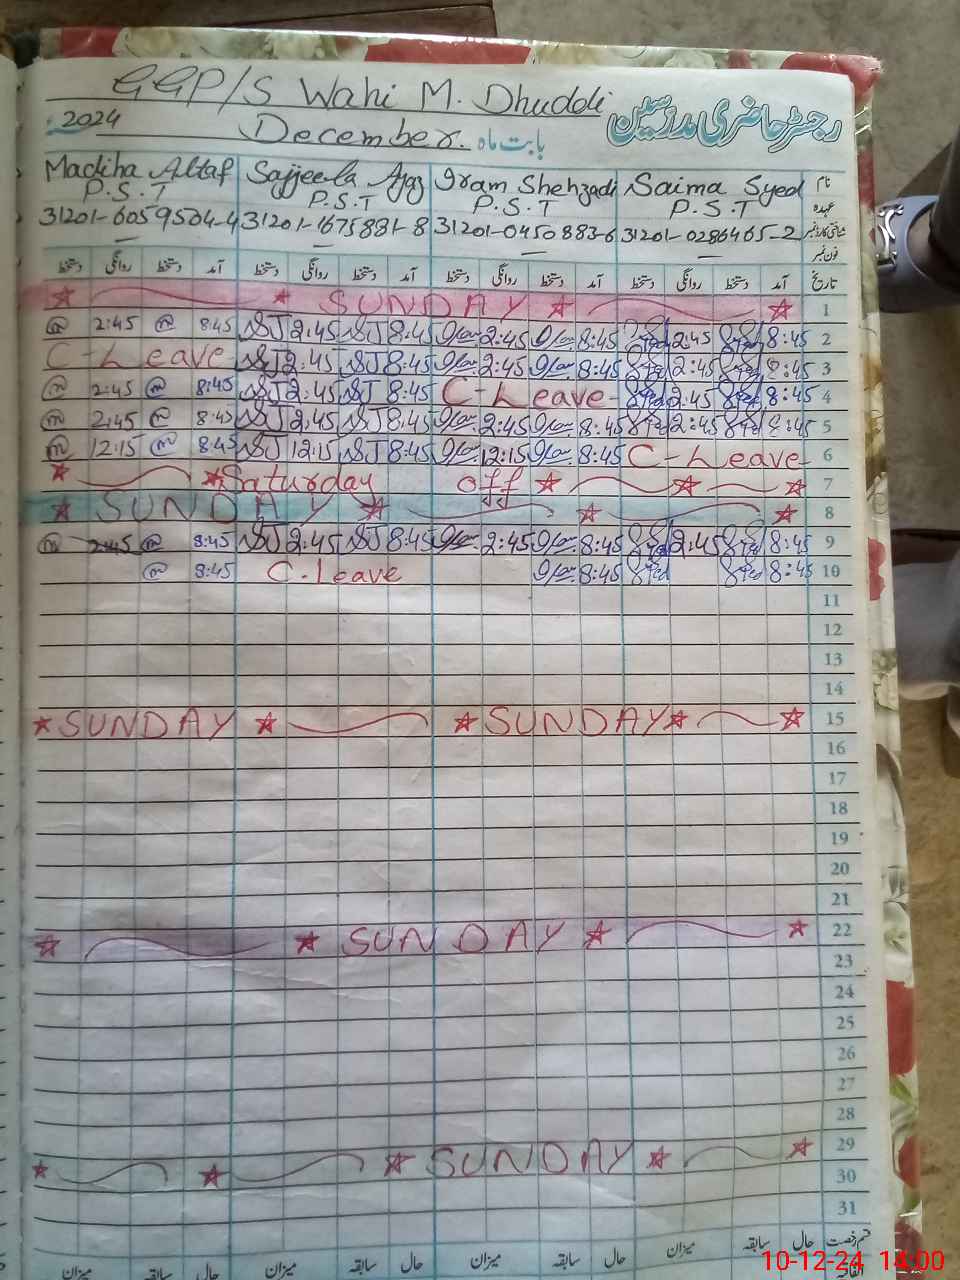 GGP/S Wahi M. Dhuddi
رجسٹر حاضری مدرسین
2024 December. بابت ماہ
Madiha Altaf Sajjeela Ajaz Iram Shehzadi Saima Syed نام
P.S.T P.S.T P.S.T P.S.T عہدہ
31201-6059504-4 31201-1675881-8 31201-0450883-6 31201-0286465-2 شناختی کارڈ نمبر
فون نمبر
دستخط روانگی دستخط آمد دستخط روانگی دستخط آمد دستخط روانگی دستخط آمد دستخط روانگی دستخط آمد تاریخ
SUNDAY 1
2:45 8:45 SJ 2:45 SJ 8:45 2:45 8:45 2:45 8:45 2
C-Leave SJ 2:45 SJ 8:45 2:45 8:45 2:45 8:45 3
2:45 8:45 SJ 2:45 SJ 8:45 C-Leave 2:45 8:45 4
2:45 8:45 SJ 2:45 SJ 8:45 2:45 8:45 2:45 8:45 5
12:15 8:45 SJ 12:15 SJ 8:45 12:15 8:45 C-Leave 6
Saturday off 7
SUNDAY 8
2:45 8:45 SJ 2:45 SJ 8:45 2:45 8:45 2:45 8:45 9
8:45 C.Leave 8:45 8:45 10
11
12
13
14
SUNDAY SUNDAY 15
16
17
18
19
20
21
SUNDAY 22
23
24
25
26
27
28
SUNDAY 29
30
31
میزان سابقہ حال میزان سابقہ حال میزان سابقہ حال میزان سابقہ حال قسم رخصت
10-12-24 14:00